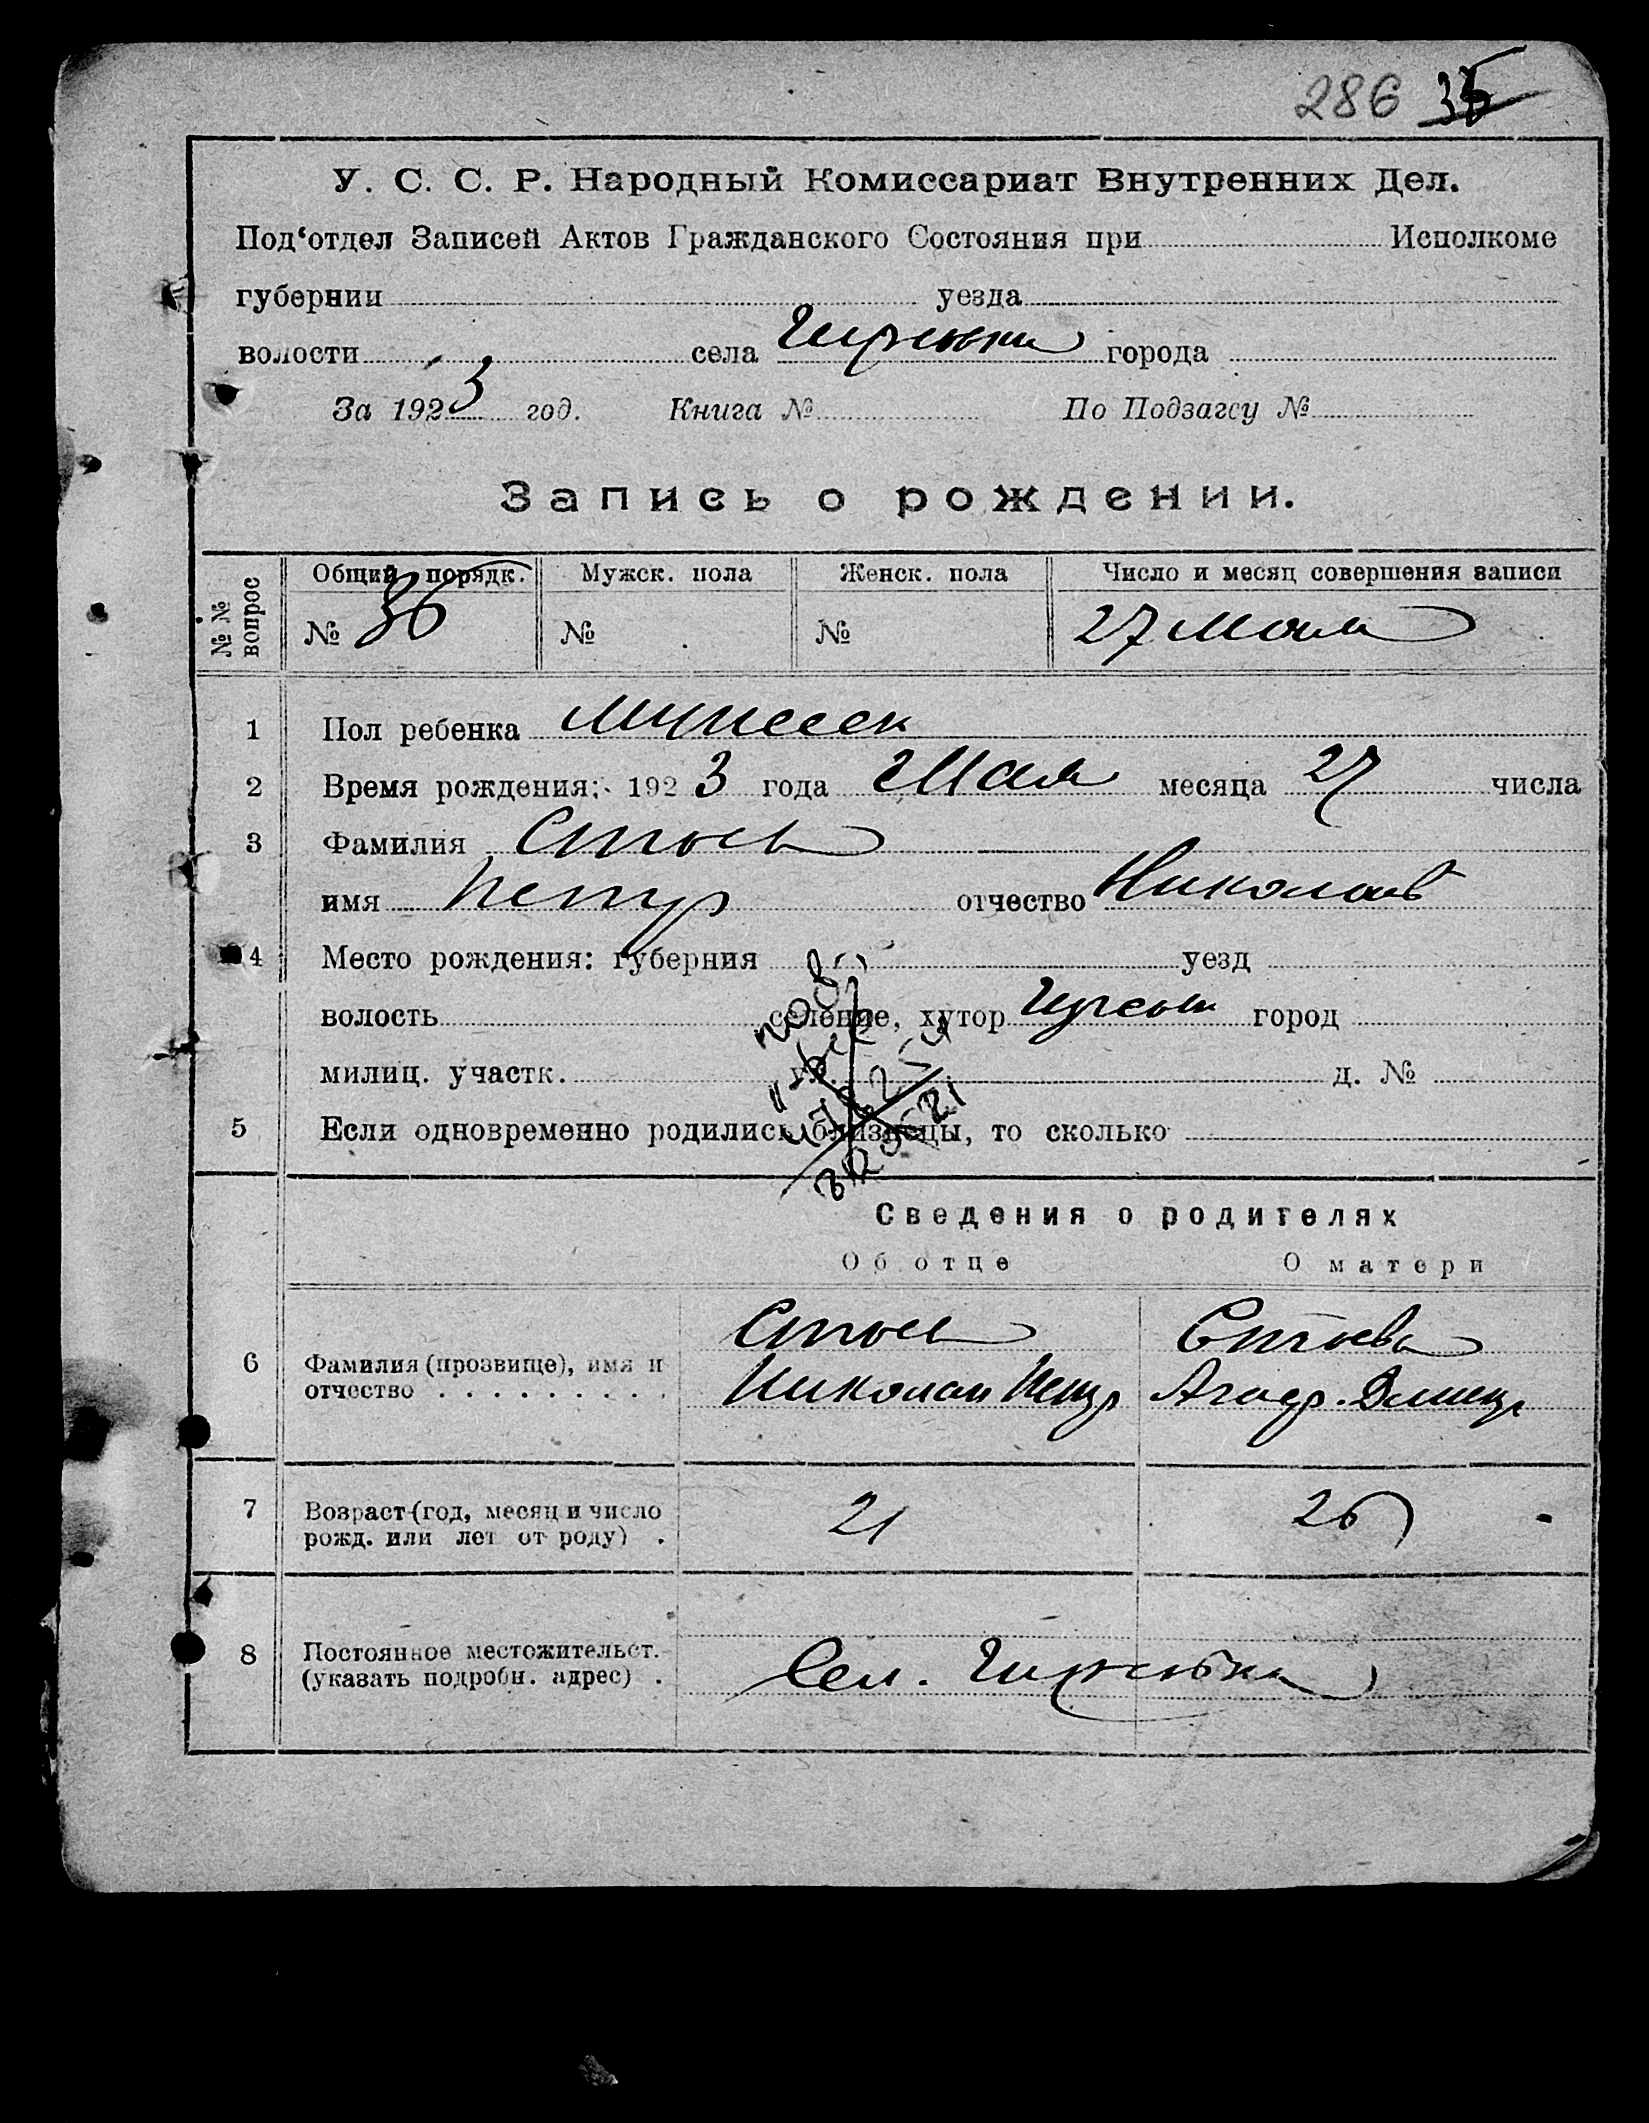 286 35
У. С. С. Р. Народный Комиссариат Внутренних Дел.
Под‘отдел Записей Актов Гражданского Состояния при Исполкоме
губернии уезда
волости села города
За 1923 год. Книга № По Подзагсу №
Запись о рождении.
№№ вопрос Общий порядк. Мужск. пола Женск. пола Число и месяц совершения записи
№ 36 № № 27 Мая
1 Пол ребенка
2 Время рождения: 1923 года Мая месяца 27 числа
3 Фамилия Стоев
имя Петр отчество Николаев
4 Место рождения: губерния уезд
волость селение, хутор город
милиц. участк. ул. д. №
5 Если одновременно родились близнецы, то сколько
Сведения о родителях
Об отце О матери
Стоев Стоева
6 Фамилия (прозвище), имя и
отчество Николай Петр
7 Возраст (год, месяц и число
рожд. или лет от роду) 21 26
8 Постоянное местожительст.
(указать подробн. адрес) Сел.